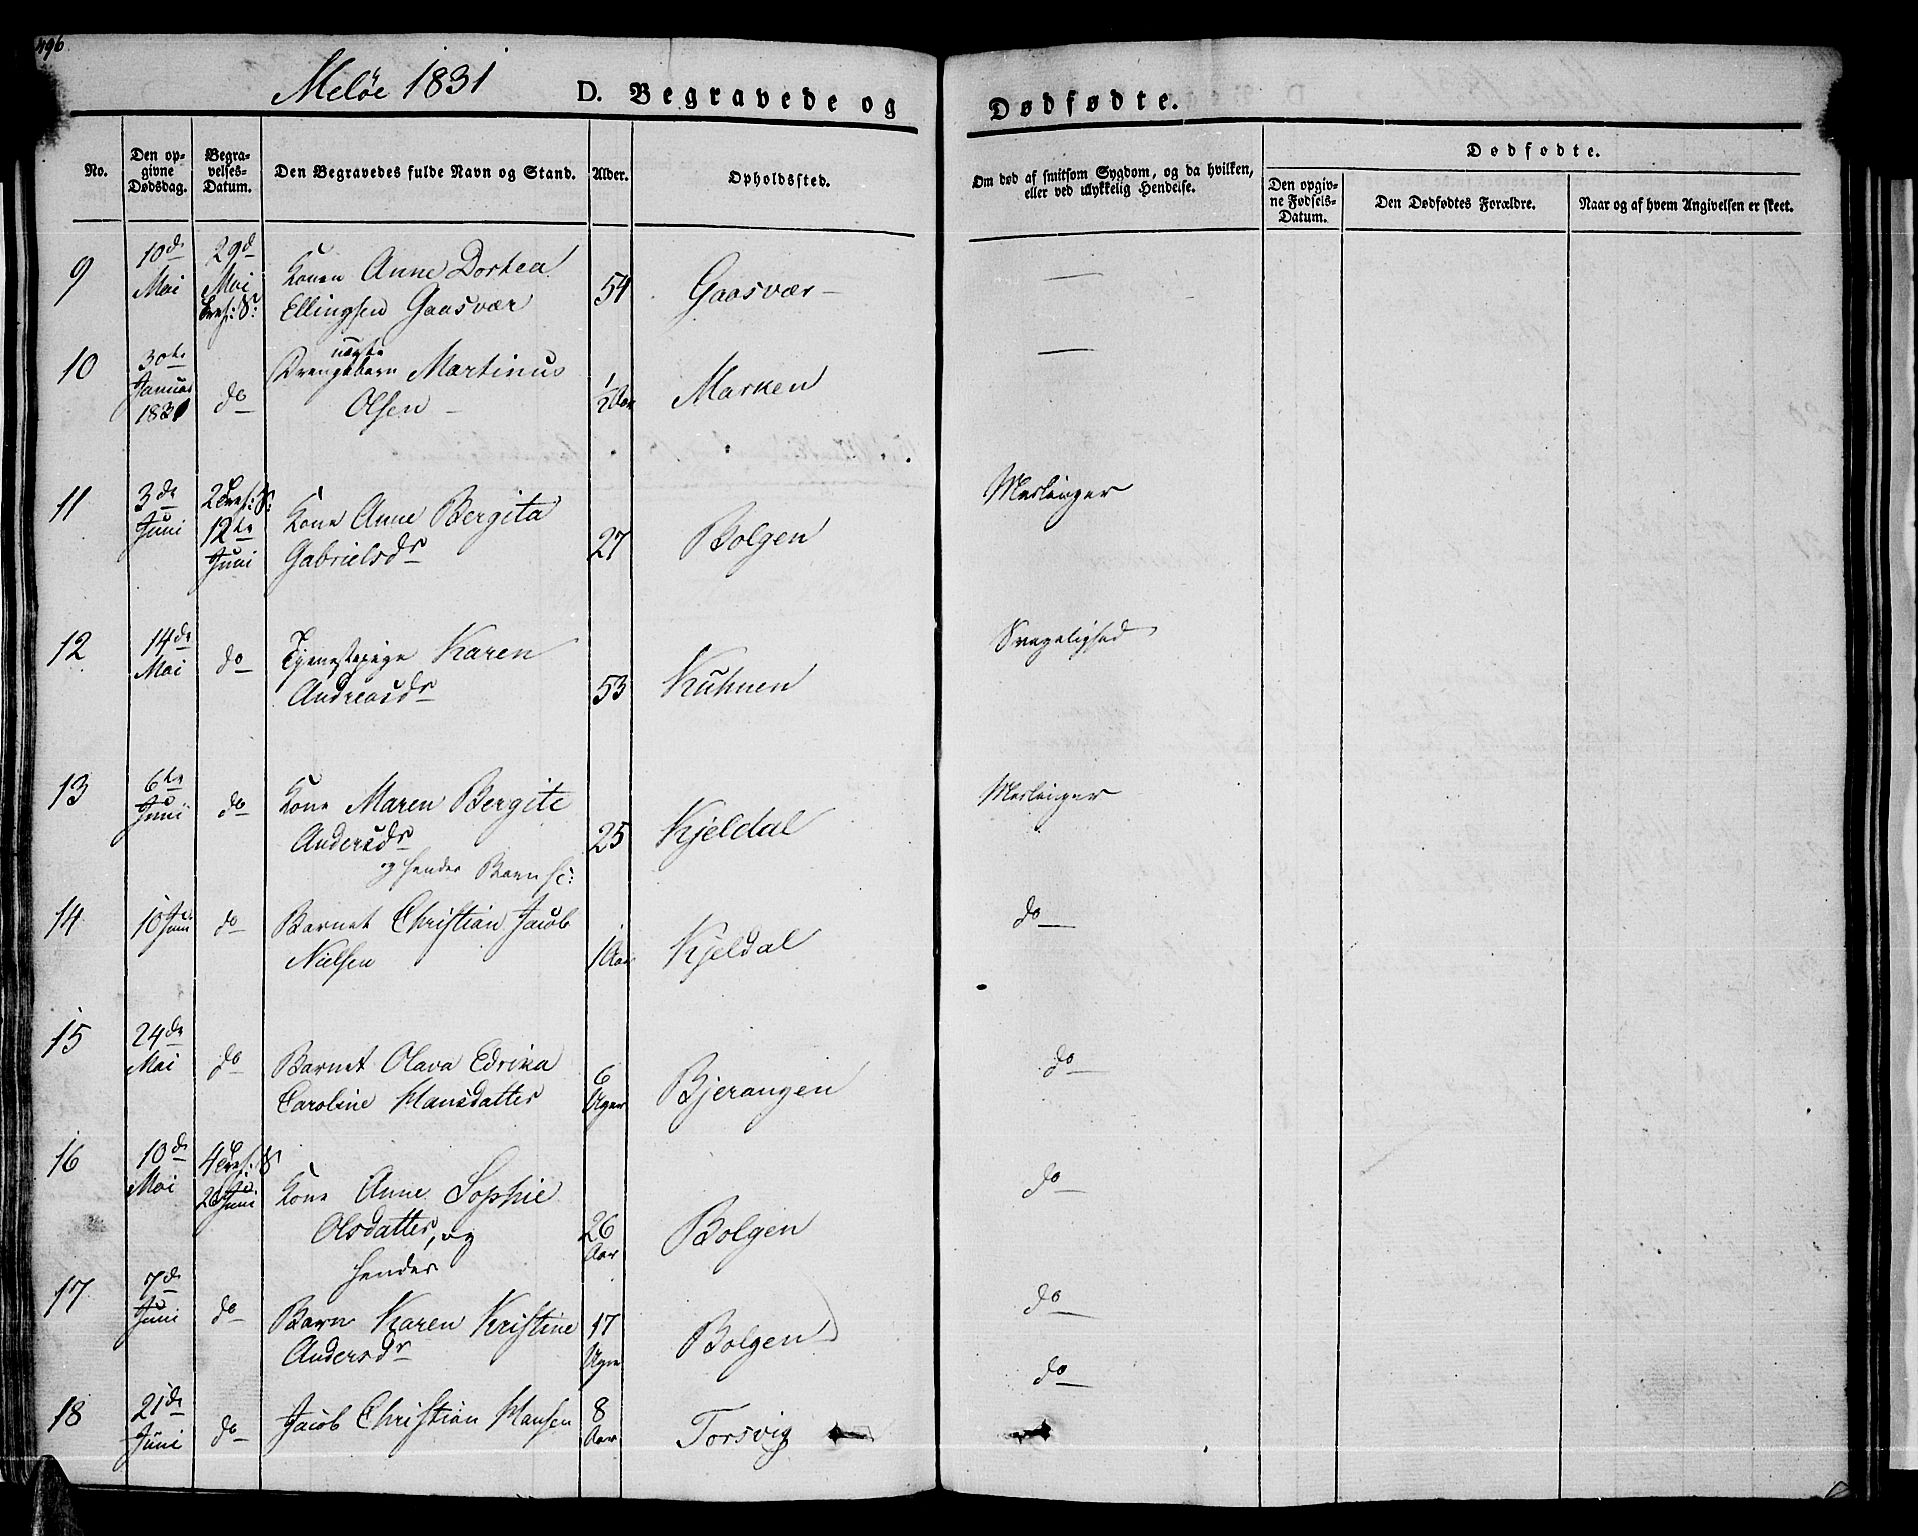 496
Meløe 1831
D. Begravede og Dødfødte.
No.
Den opgivne Dødsdag.
Begravelses-Datum.
Den Begravedes fulde Navn og Stand.
Alder.
Opholdssted.
Om død af smitsom Sygdom, og da hvilken,
eller ved ulykkelig Hendelse.
Dødfødte.
Den opgivne Fødsels-Datum.
Den Dødfødtes Forældre.
Naar og af hvem Angivelsen er skeet.
9 10de Mai 29d Mai Konen Anne Dortea
Ellingsen Gaasvær 54 Gaasvær —
10 30te Januar 1831 do Drengebarn Martinus
Olsen 1/2 Aar Marken —
11 3de Juni 2 Tref: S: 12te Juni Kone Anne Bergita
Gabrielsdr 27 Bolgen Meslinger
12 14de Mai do Tjenestepige Karen
Andreasdr 53 Kuhnen Svagelighed
13 6te Juni do Kone Maren Bergite
Andersdr 25 Kjeldal Meslinger
og hendes Barn
14 10 Juni do Barnet Christian Jacob
Nielsen 1 Aar Kjeldal do
15 24de Mai do Barnet Olava Edrika
Caroline Hansdatter 6 Uger Bjerangen do
16 10de Mai 4 Tref: S 26 Juni Kone Anne Sophie
Olsdatter, og
hendes 26 Aar Bolgen do
17 7de Juni do Barn Karen Kristine
Andersdr 17 Uger Bolgen do
18 21de Juni do Jacob Christian Hansen 8 Aar Torsvig do